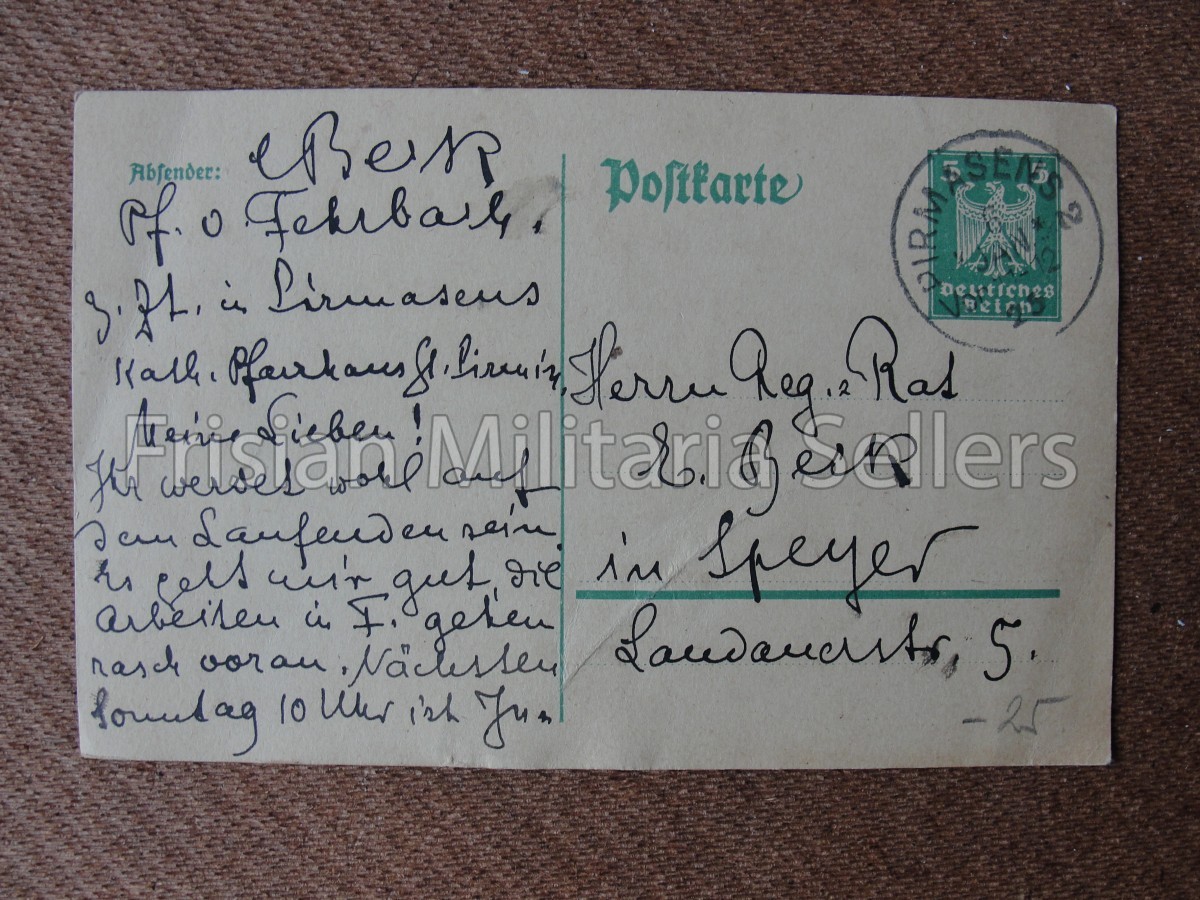 Absender: Berk
Pf. v Fehrbach.
z. Zt. in Pirmasens
Kath. Pfarrhaus St. Pirmin.
Meine Lieben!
Ihr werdet wohl auf
dem Laufenden sein.
Es geht mir gut, die
Arbeiten in F. gehen
rasch voran. Nächsten
Sonntag 10 Uhr ist
Postkarte
PIRMASENS 2
5 5
Deutsches
Reich
Herrn Reg.-Rat
E. Berk
in Speyer
Landauerstr. 5.
- 25
Frisian Militaria Sellers